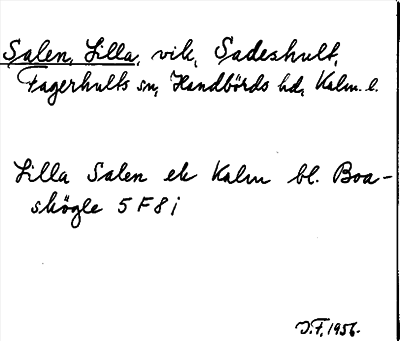 Salen, Lilla, vik, Sadeshult,
Fagerhults sn, Handbörds hd, Kalm. l.
Lilla Salen ek Kalm bl. Boa-
skögle 5 F 8 i
J.F. 1956.